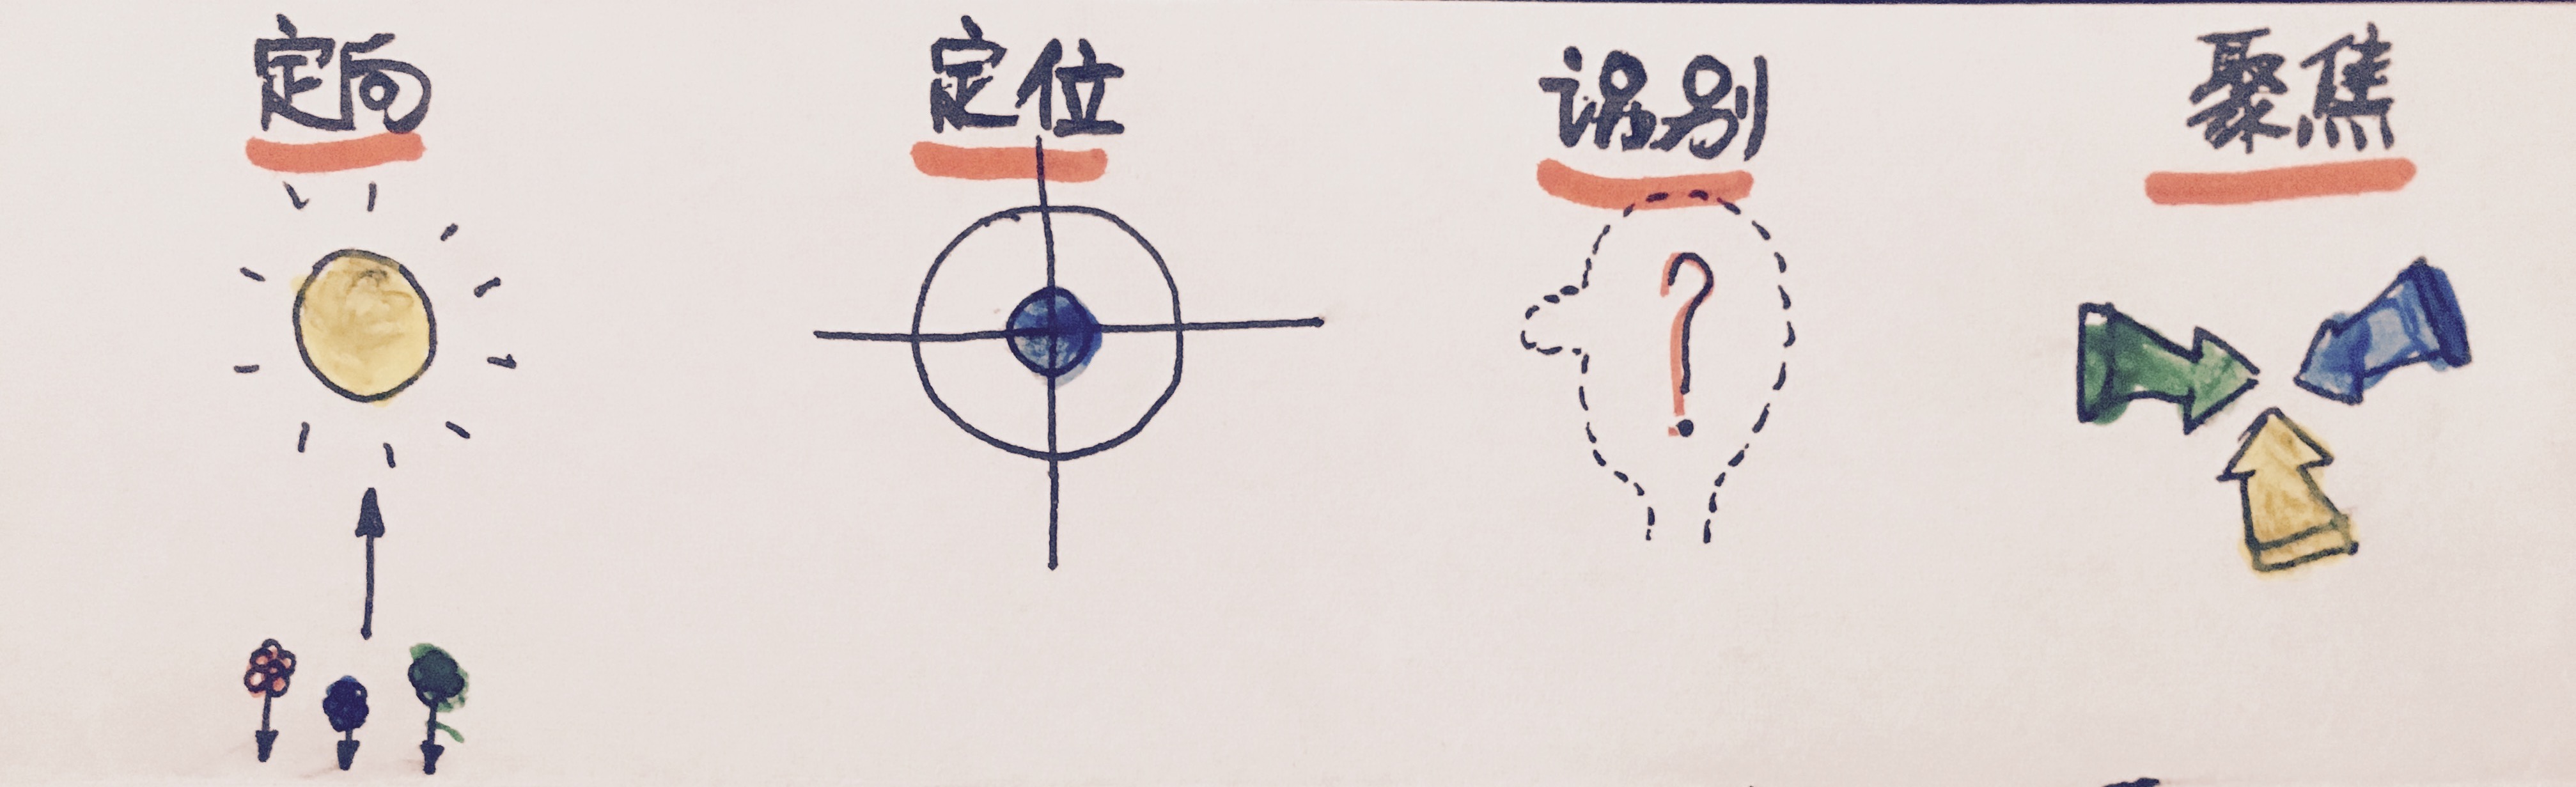 定向
定位
识别
聚焦
?